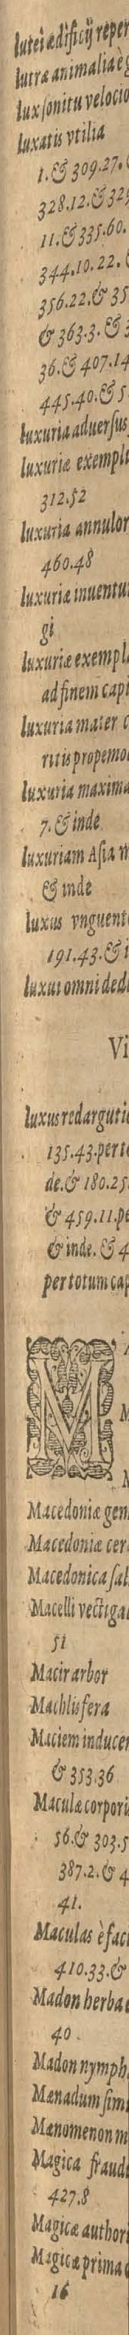 lutei ædificij reper
lutræ animalia è g
lux sonitu velocio
luxatis vtilia
1.& 309.27.
328.12.& 329
11.& 335.60.
344.10.22.
356.22.& 35
& 363.3.& 3
36.& 407.14
445.40.& 5
luxuria aduersus
luxuriæ exempl
312.52
luxuria annulor
460.48
luxuriæ inuentu
gi
luxuriæ exempl
ad finem capi
luxuria mater c
ritis propemo
luxuria maxima
7.& inde
luxuriam Asia
& inde
luxus vnguent
191.43.& i
luxui omni dedi
Vi
luxus redarguti
135.43.pert
de.& 180.25
& 459.11.pe
& inde.& 4
per totum cap
M
Macedoniæ gen
Macedoniæ cer
Macedonica sal
Macelli vectigal
51
Macir arbor
Machlis fera
Maciem inducen
& 353.36
Maculæ corpori
56.& 303.5
387.2.& 4
41.
Maculas è faci
410.33.&
Madon herba
40.
Madon nymph
Mænadum simi
Mænomenon m
Magica fraud
427.8
Magicæ authori
Magicæ prima
16